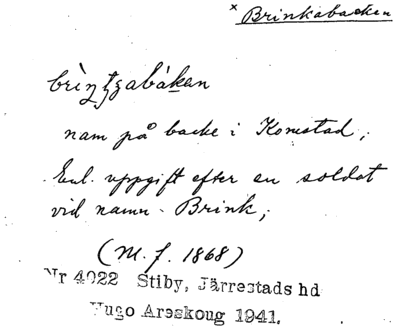 × Brinkabacken
brìŋkabákan
namn på backe i Komstad;
Enl. uppgift efter en soldat
vid namn Brink;
(M. f. 1868)
Nr 4022 Stiby, Järrestads hd
Hugo Areskoug 1941.